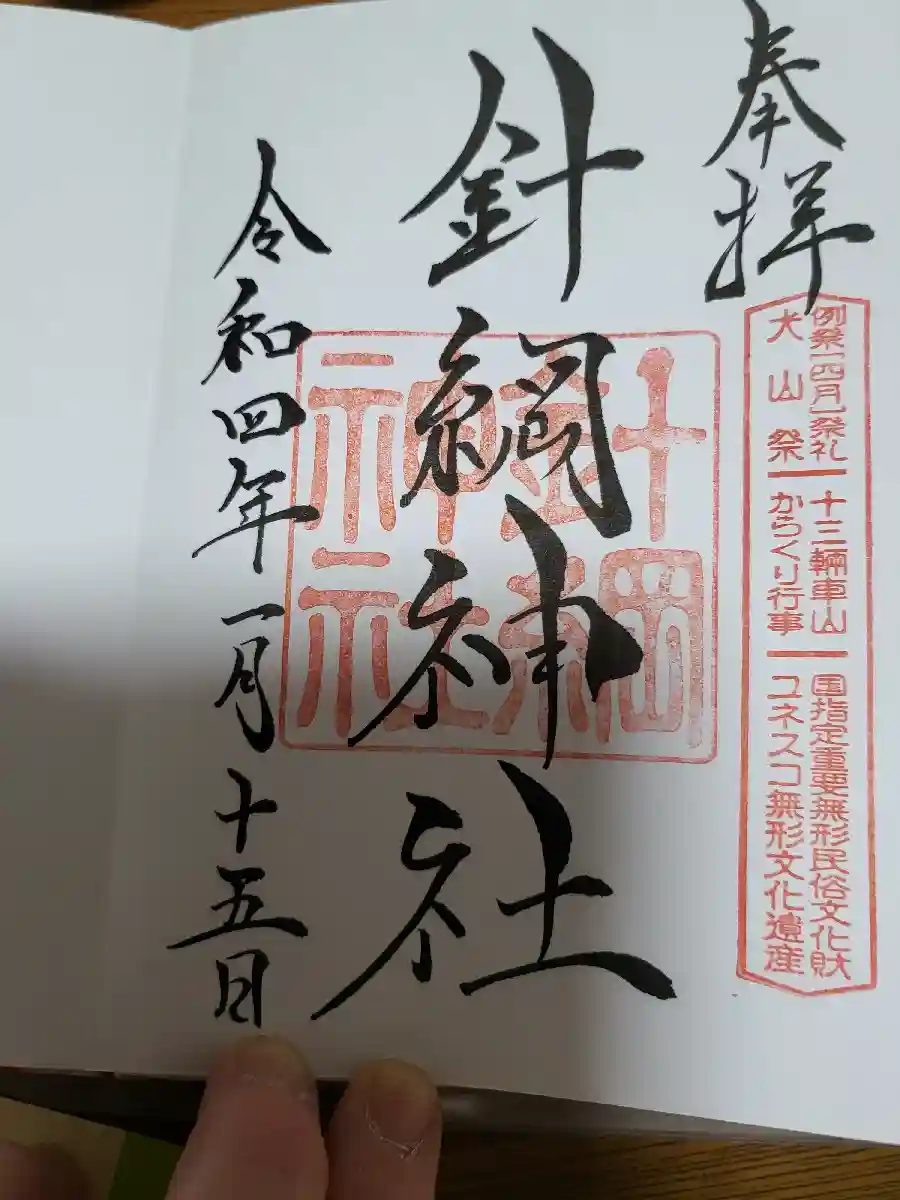 奉拝
例祭(四月)祭礼 十三輛車山 国指定重要無形民俗文化財
犬山祭 からくり行事 ユネスコ無形文化遺産
針綱神社
針綱
神社
令和四年一月十五日